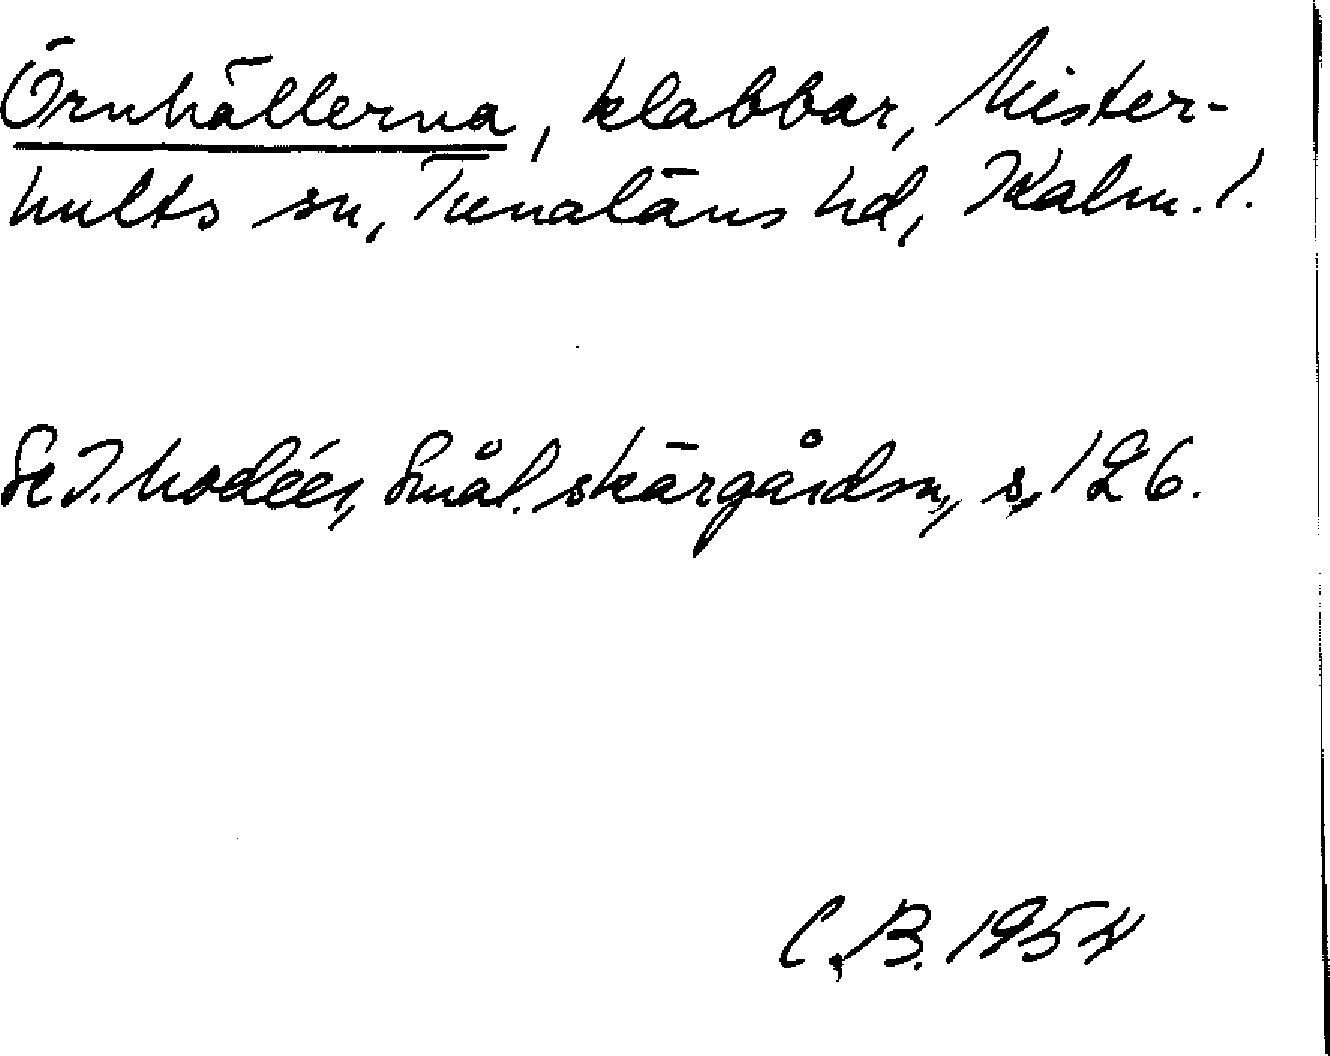 Örnhällerna, klabbar, Mister-
hults sn, Tunaläns hd, Kalm. l.
Se I. Modéer, Smål. skärgårdsn., s. 126.
C. B. 1954